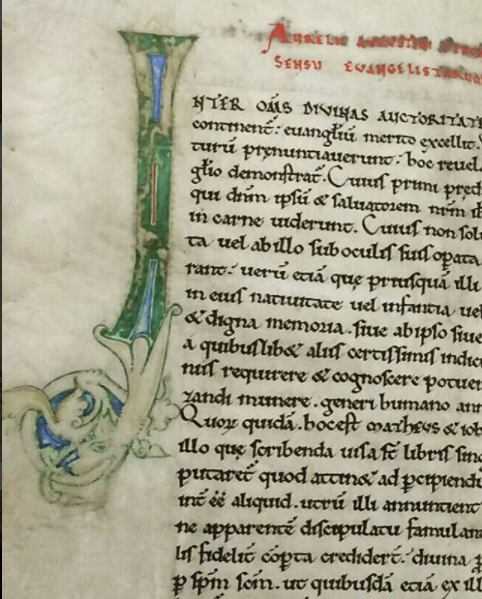 AURELII AUGUSTINI
SENSU EVANGELISTARUM
INTER OM̅S DIVINAS AUCTORITATE
continent᷑: euangl̅iu̅ merito excellit.
turu̅ prenuntiauerunt: hoc reuel
gl̅io demonstrat᷑. Cuius primi pred
qui dn̅m ipsu̅ & saluatorem nr̅m ih̅
in carne uiderunt. Cuius non solu
ta uel ab illo sub oculis suis op̅ata
rant: ueru̅ etia̅ que priusqua̅ illi
in eius natiuitate uel infantia uel
& digna memoria. siue ab ipso siue
a quibuslib& aliis certissimis indici
niis requirere & cognoscere potuer
zandi munere. generi humano ann
Quor̅ꝝ quida̅. hoc est matheus & ioh
illo que scribenda uisa s̅t libris sing
putaret᷑ quod attin& ad ꝑcipiendu
int̅ ee̅ aliquid. utru̅ illi annuntient
ne apparente̅ discipulatu famulant
lis fidelit̅ co̅ꝑta credider̅: diuina ꝑ
ꝑ spm̅ scm̅. ut quibusda̅ etia̅ ex ill